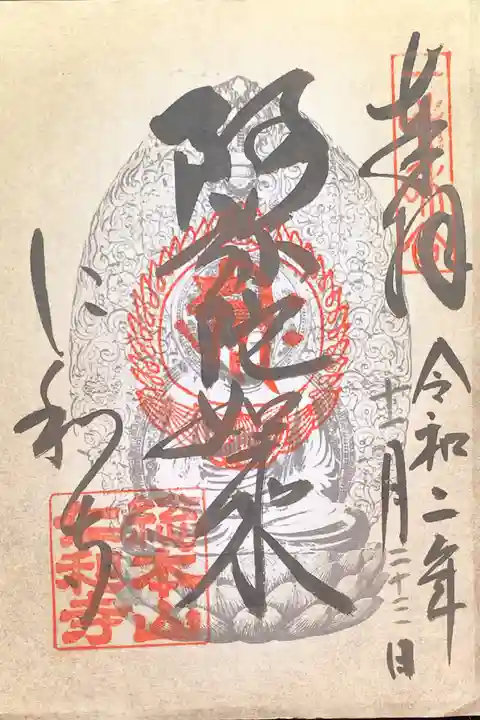 奉拝
令和二年
十一月二十二日
阿弥陀如来
にわち
総本山
仁和寺